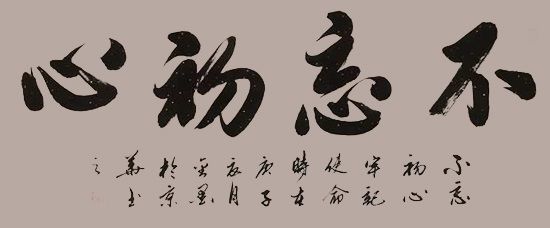 不忘初心
不忘
初心
牢記
使命
時在
庚子
月
墨
於京